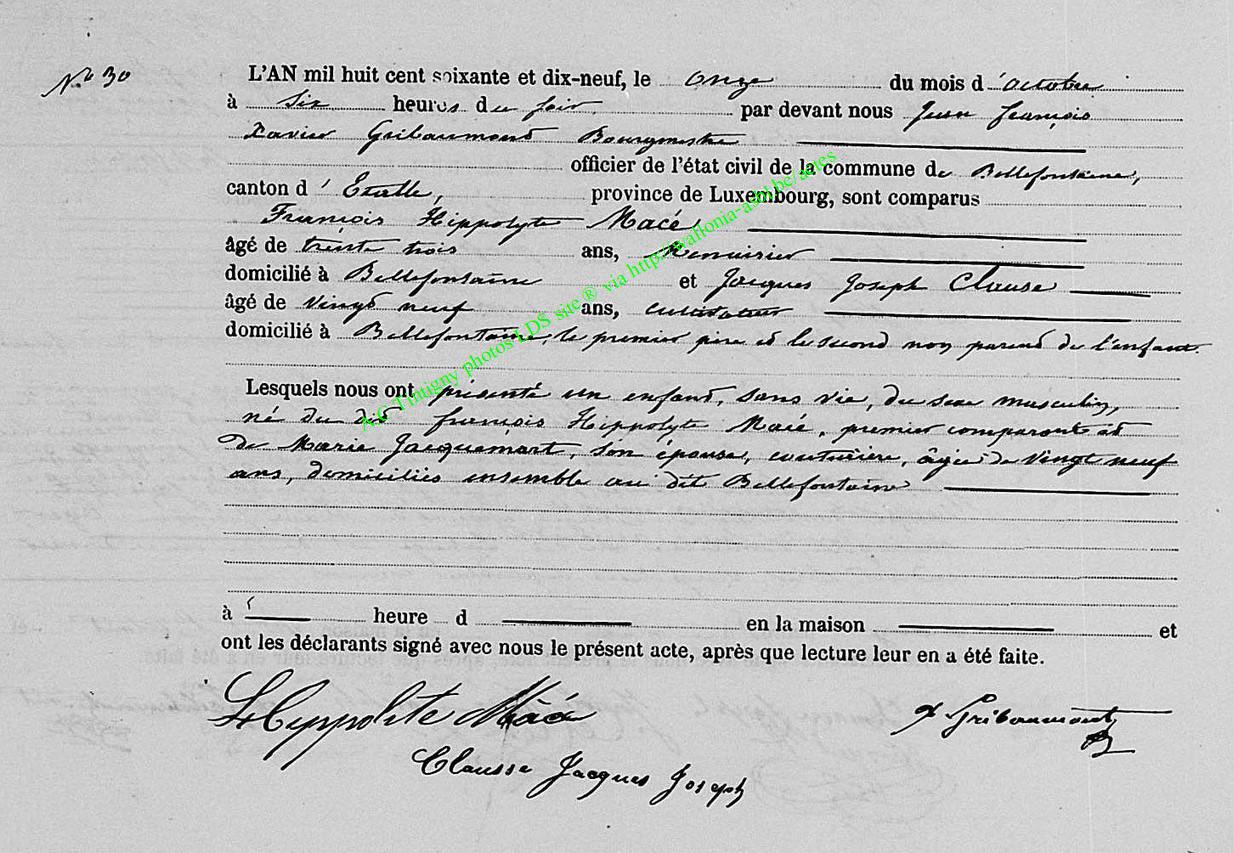 No 30
L'AN mil huit cent soixante et dix-neuf, le onze du mois d'octobre
à six heures du soir par devant nous Jean François
Xavier Gribaumont Bourgmestre
officier de l'état civil de la commune de Bellefontaine,
canton d'Etalle, province de Luxembourg, sont comparus
François Hippolyte Macé
âgé de trente trois ans, Menuisier
domicilié à Bellefontaine et Jacques Joseph Clausse
âgé de vingt neuf ans, cultivateur
domicilié à Bellefontaine, le premier père et le second non parent de l'enfant.
Lesquels nous ont présenté un enfant, sans vie, du sexe masculin,
né du dit françois Hippolyte Macé, premier comparant et
de Marie Jacquemart, son épouse, couturière, âgée de vingt neuf
ans, domiciliés ensemble au dit Bellefontaine
à heure d en la maison et
ont les déclarants signé avec nous le présent acte, après que lecture leur en a été faite.
Hyppolite Macé
X Gribaumont
Clausse Jacques Joseph
A.C Tintigny photos LDS site ® via http://wallonia-asbl.be/actes